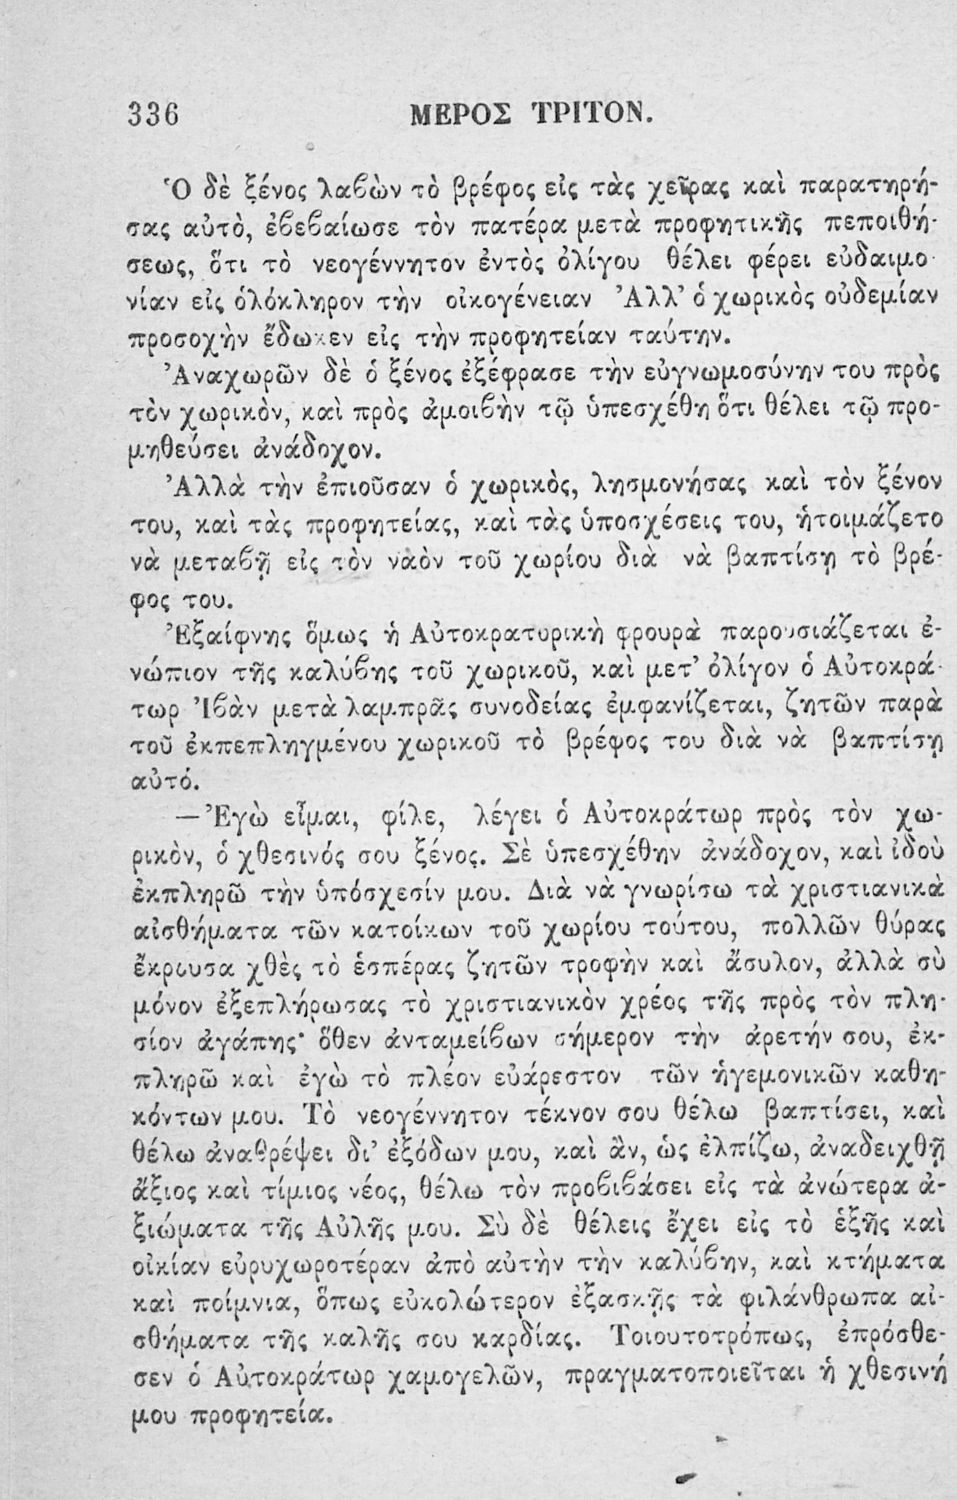 336 ΜΕΡΟΣ ΤΡΙΤΟΝ.
Ὁ δὲ ξένος λαβὼν τὸ βρέφος εἰς τὰς χεῖρας καὶ παρατηρή-
σας αὐτὸ, ἐβεβαίωσε τὸν πατέρα μετὰ προφητικῆς πεποιθή-
σεως, ὅτι τὸ νεογέννητον ἐντὸς ὀλίγου θέλει φέρει εὐδαιμο-
νίαν εἰς ὁλόκληρον τὴν οἰκογένειαν Ἀλλ’ ὁ χωρικὸς οὐδεμίαν
προσοχὴν ἔδωκεν εἰς τὴν προφητείαν ταύτην.
Ἀναχωρῶν δὲ ὁ ξένος ἐξέφρασε τὴν εὐγνωμοσύνην του πρὸς
τὸν χωρικὸν, καὶ πρὸς ἀμοιβὴν τῷ ὑπεσχέθη ὅτι θέλει τῷ προ-
μηθεύσει ἀνάδοχον.
Ἀλλὰ τὴν ἐπιοῦσαν ὁ χωρικὸς, λησμονήσας καὶ τὸν ξένον
του, καὶ τὰς προφητείας, καὶ τὰς ὑποσχέσεις του, ἡτοιμάζετο
νὰ μεταβῇ εἰς τὸν ναὸν τοῦ χωρίου διὰ νὰ βαπτίσῃ τὸ βρέ-
φος του.
Ἐξαίφνης ὅμως ἡ Αὐτοκρατορικὴ φρουρὰ παρουσιάζεται ἐ-
νώπιον τῆς καλύβης τοῦ χωρικοῦ, καὶ μετ’ ὀλίγον ὁ Αὐτοκρά-
τωρ Ἰβὰν μετὰ λαμπρᾶς συνοδείας ἐμφανίζεται, ζητῶν παρὰ
τοῦ ἐκπεπληγμένου χωρικοῦ τὸ βρέφος του διὰ νὰ βαπτίσῃ
αὐτό.
—Ἐγὼ εἶμαι, φίλε, λέγει ὁ Αὐτοκράτωρ πρὸς τὸν χω-
ρικὸν, ὁ χθεσινός σου ξένος. Σὲ ὑπεσχέθην ἀνάδοχον, καὶ ἰδοὺ
ἐκπληρῶ τὴν ὑπόσχεσίν μου. Διὰ νὰ γνωρίσω τὰ χριστιανικὰ
αἰσθήματα τῶν κατοίκων τοῦ χωρίου τούτου, πολλῶν θύρας
ἔκρουσα χθὲς τὸ ἑσπέρας ζητῶν τροφὴν καὶ ἄσυλον, ἀλλὰ σὺ
μόνον ἐξεπλήρωσας τὸ χριστιανικὸν χρέος τῆς πρὸς τὸν πλη-
σίον ἀγάπης· ὅθεν ἀνταμείβων σήμερον τὴν ἀρετήν σου, ἐκ-
πληρῶ καὶ ἐγὼ τὸ πλέον εὐάρεστον τῶν ἡγεμονικῶν καθη-
κόντων μου. Τὸ νεογέννητον τέκνον σου θέλω βαπτίσει, καὶ
θέλω ἀναθρέψει δι’ ἐξόδων μου, καὶ ἂν, ὡς ἐλπίζω, ἀναδειχθῇ
ἄξιος καὶ τίμιος νέος, θέλω τὸν προβιβάσει εἰς τὰ ἀνώτερα ἀ-
ξιώματα τῆς Αὐλῆς μου. Σὺ δὲ θέλεις ἔχει εἰς τὸ ἑξῆς καὶ
οἰκίαν εὐρυχωροτέραν ἀπὸ αὐτὴν τὴν καλύβην, καὶ κτήματα
καὶ ποίμνια, ὅπως εὐκολώτερον ἐξασκῇς τὰ φιλάνθρωπα αἰ-
σθήματα τῆς καλῆς σου καρδίας. Τοιουτοτρόπως, ἐπρόσθε-
σεν ὁ Αὐτοκράτωρ χαμογελῶν, πραγματοποιεῖται ἡ χθεσινή
μου προφητεία.